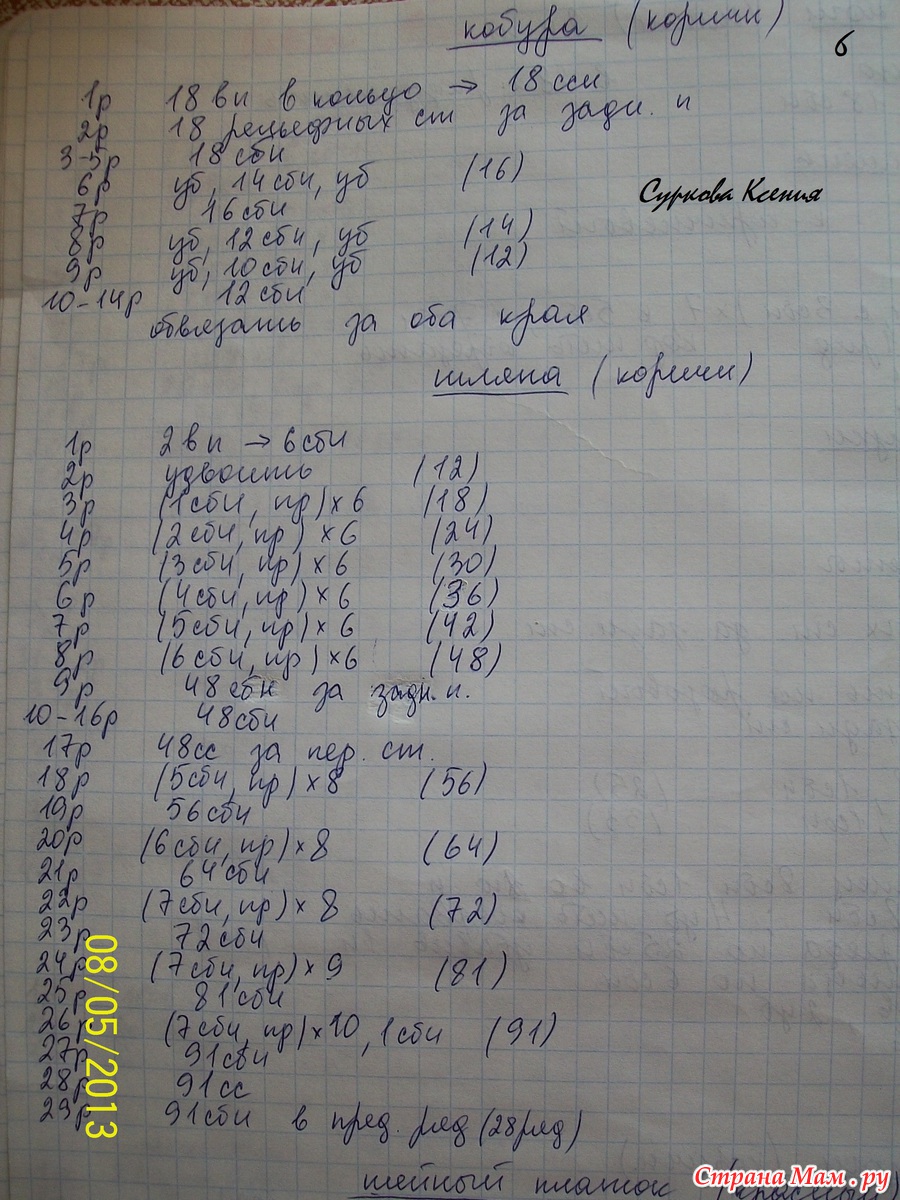 кобура (коричн)
6
1р 18 вп в кольцо → 18 ссн
2р 18 рельефных ст за задн. п
3-5р 18 сбн
6р уб, 14 сбн, уб (16)
Суркова Ксения
7р 16 сбн
8р уб, 12 сбн, уб (14)
9р уб, 10 сбн, уб (12)
10-14р 12 сбн
обвязать за оба края
шляпа (коричн)
1р 2 вп → 6 сбн
2р удвоить (12)
3р (1 сбн, пр) × 6 (18)
4р (2 сбн, пр) × 6 (24)
5р (3 сбн, пр) × 6 (30)
6р (4 сбн, пр) × 6 (36)
7р (5 сбн, пр) × 6 (42)
8р (6 сбн, пр) × 6 (48)
9р 48 сбн за задн. п.
10-16р 48 сбн
17р 48 сс за пер. ст.
18р (5 сбн, пр) × 8 (56)
19р 56 сбн
20р (6 сбн, пр) × 8 (64)
21р 64 сбн
22р (7 сбн, пр) × 8 (72)
23р 72 сбн
24р (7 сбн, пр) × 9 (81)
25р 81 сбн
26р (7 сбн, пр) × 10, 1 сбн (91)
27р 91 сбн
28р 91 сс
29р 91 сбн в пред. ряд (28 ряд)
шейный платок
08/05/2013
Страна Мам.ру